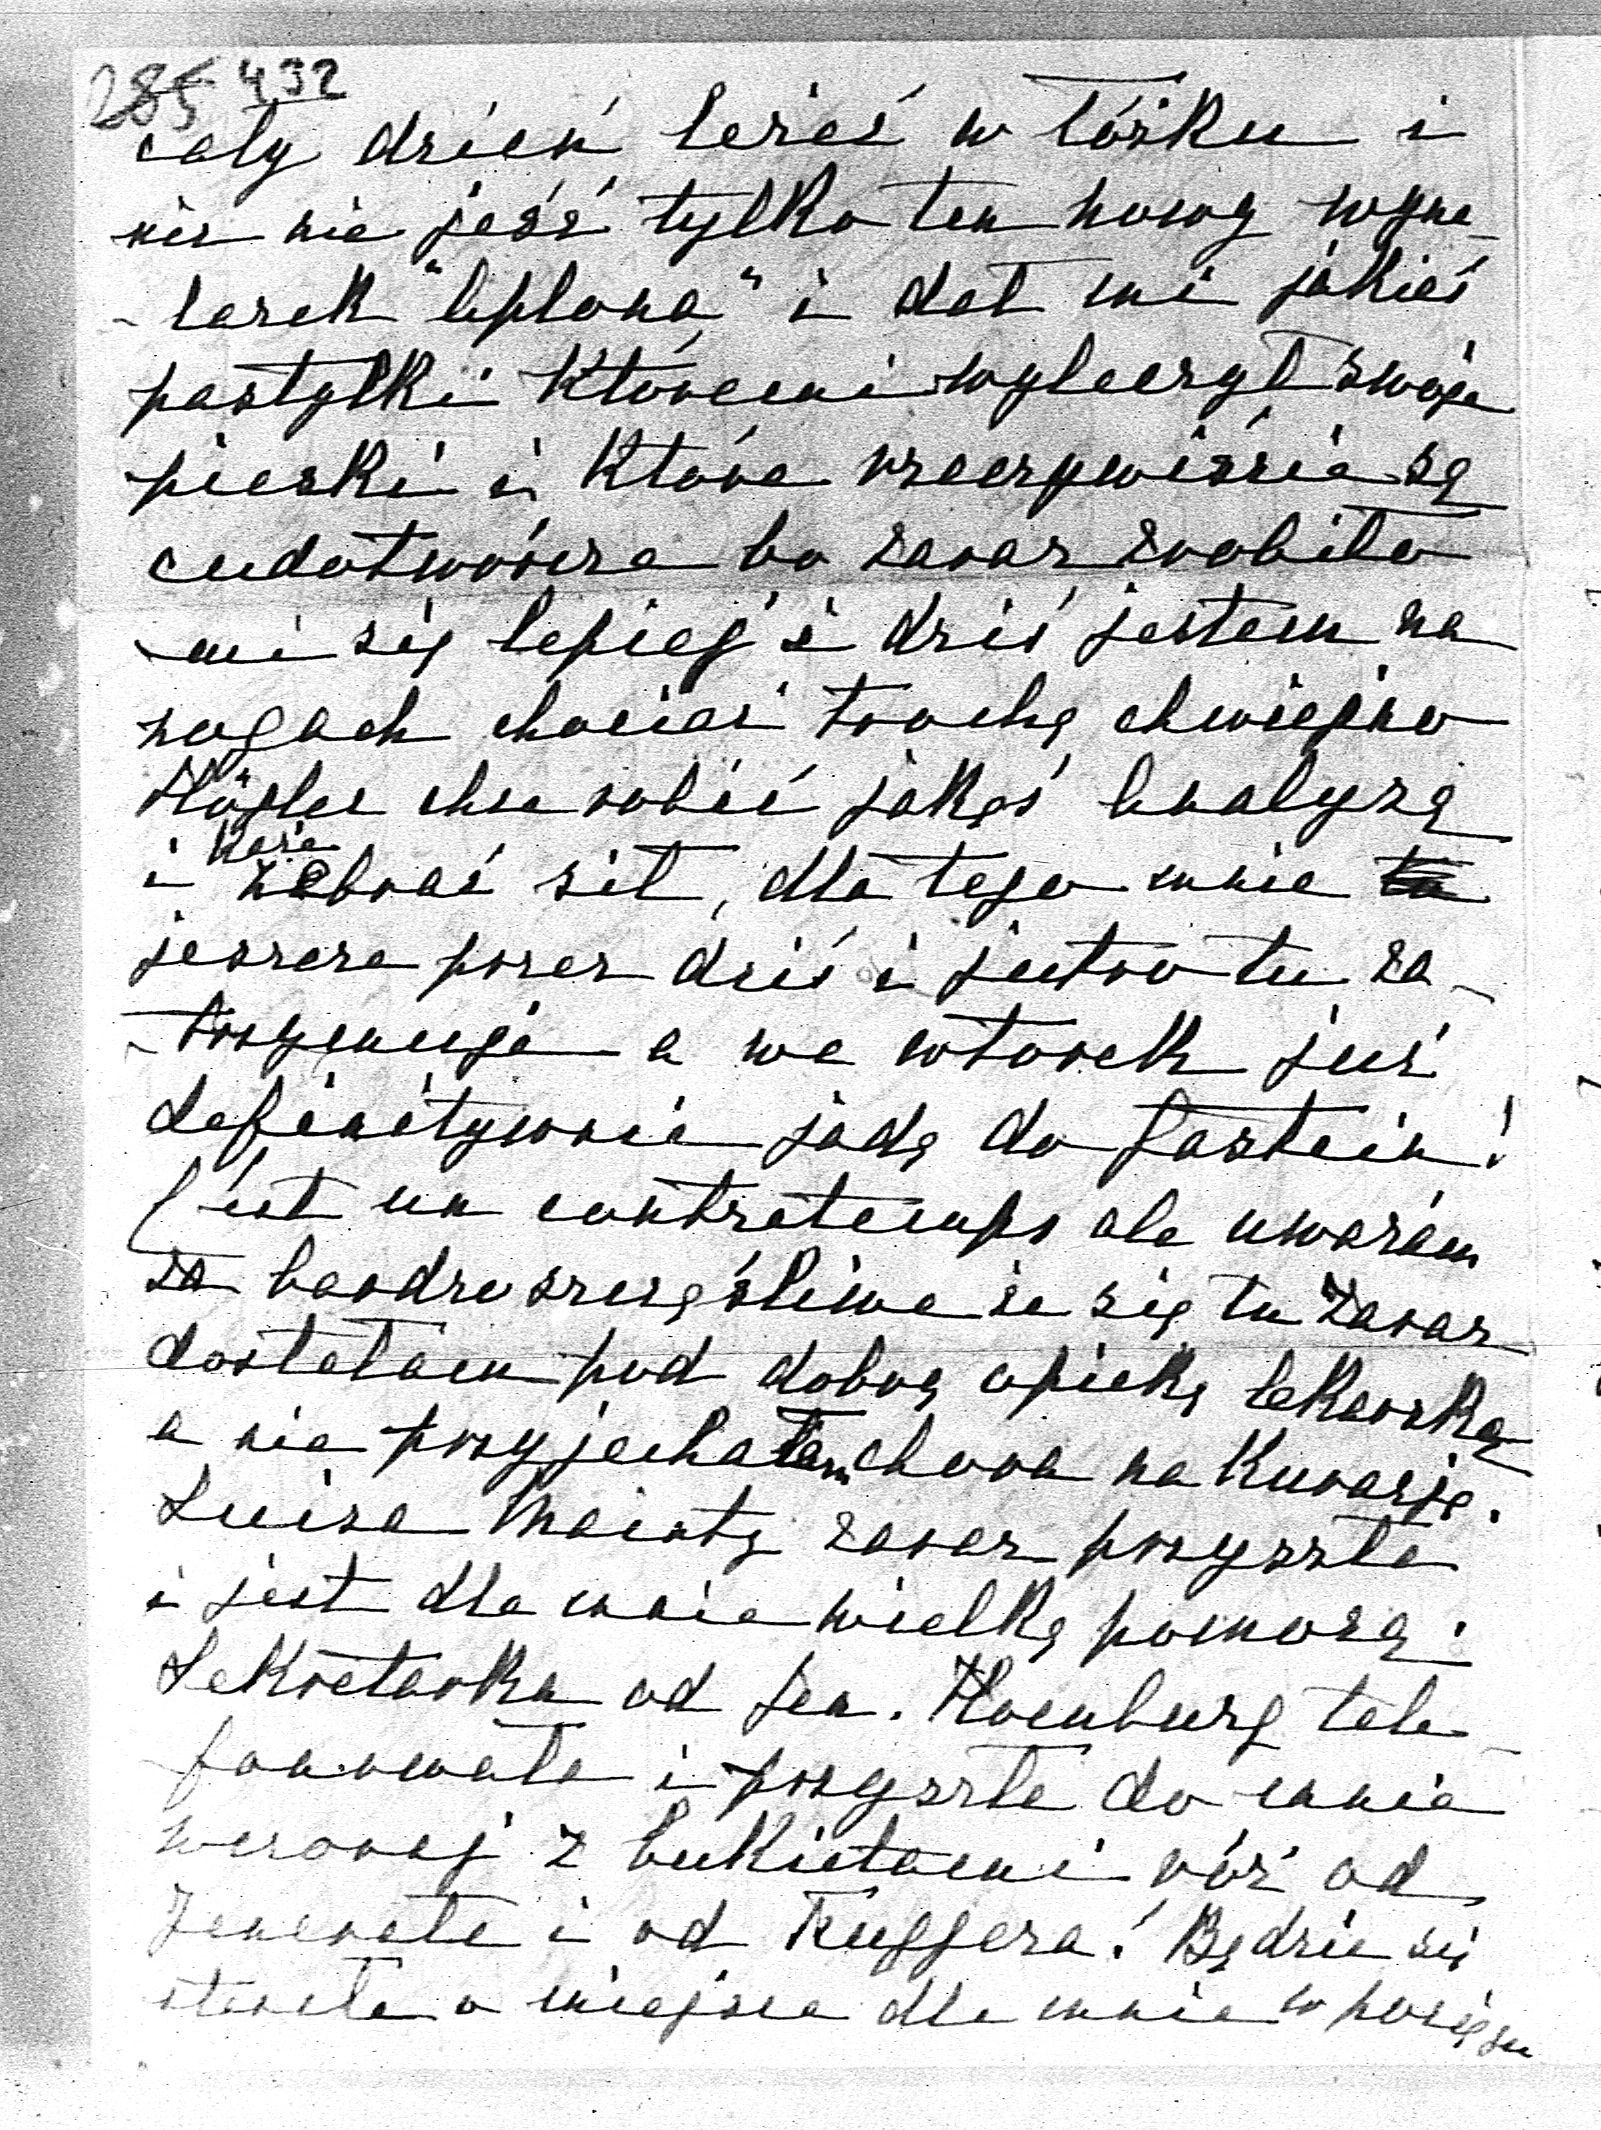 285 432
cały dzień leżeć w łóżku i
nic nie jeść tylko ten nowy wyna-
-lazek "leplona" i dał mi jakieś
pastylki któremi wyleczył swoje
pieski i które rzeczywiście są
cudotwórcze bo zaraz zrobiło
mi się lepiej i dziś jestem na
nogach chociaż trochę chwiejno
Höfler chce robić jakąś analyzę
i każe zebrać sił, dla tego mnie
jeszcze przez dziś i jutro tu za-
-trzymuje a we wtorek już
definitywnie jadę do Gastein!
C'est un contretemps ale uważam
za bardzo szczęśliwe że się tu zaraz
dostałam pod dobrą opiekę lekarską
a nie przyjechałam chora na kurację.
Luiza zaraz przyszła
i jest dla mnie wielką pomocą.
Sekretarka od Jen. tele-
fonowała i przyszła do mnie
wczoraj z bukietami róż od
Jenerała i od Fuggera! Będzie się
starała o miejsce dla mnie w pociągu